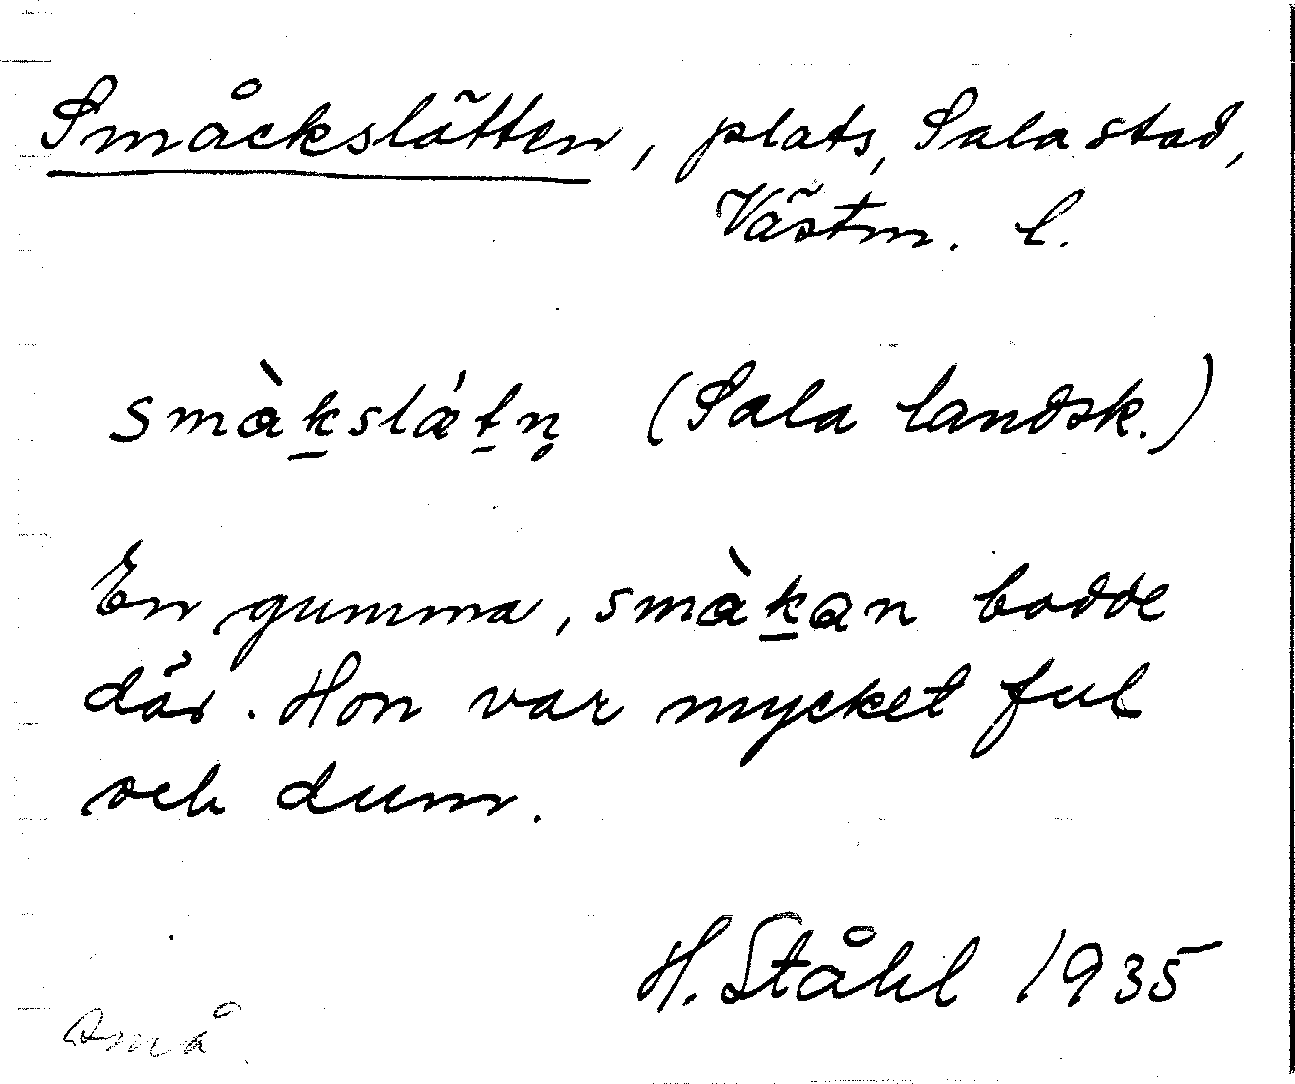 Småckslätten, plats, Sala stad,
Västm. l.
smàk̲slǽt̲n̥ (Sala landsk.)
En gumma, smàk̲an bodde
där. Hon var mycket ful
och dum.
H. Ståhl 1935
små